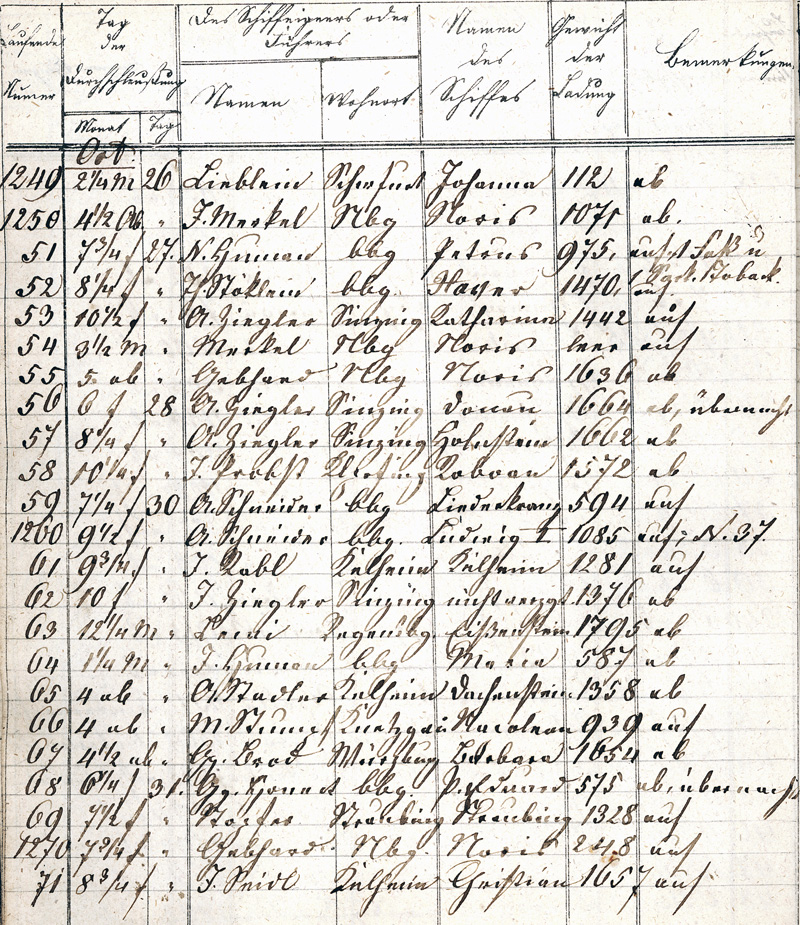 Laufende Numer
Tag der Durchschleußung
Des Schiffeigners oder Führers
Namen des Schiffes
Gewicht der Ladung
Bemerkungen.
Monat Tag Namen Wohnort
Oct.
1249 2¼ M 26 Lieblein Schwfurt Johanna 112 ab
1250 4½ Ab " J. Merkel Nbg Noris 1071 ab.
51 7¾ f 27. N. Human bbg Petrus 975, auf, 1 Faß u
1 Pack. Toback.
52 8¼ f " Stöklein bbg. 1470, auf
53 10½ f " A. Ziegler Sinzing Katharina 1442 auf
54 3½ M " Merkel Nbg Noris leer auf
55 5 ab " Gebhard Nbg Noris 1636 ab
56 6 f 28 A. Ziegler Sinzing Donau 1664 ab, übernacht
57 8¼ f " A. Ziegler Sinzing Holnstein 1662 ab
58 10¼ f " J. Probst 1572 ab
59 7¼ f 30 A. Schneider bbg Liederkranz 594 auf
1260 9½ f " A. Schneider bbg. Ludwig I 1085 auf, N. 37
61 9¾ f " J. Rabl Kelheim Kelheim 1281 auf
62 10 f " J. Ziegler Sinzing 1376 ab
63 12¼ M " Regensbg. 1795 ab
64 1¼ M " J. Human bbg Maria 587 ab
65 4 ab " A. Stadler Kelheim Dachenstein 1358 ab
66 4 ab " M. Stumpf Knetzgau Napoleon 939 auf
67 4½ ab " Gg. Brod Würzburg Barbara 1654 ab
68 6¼ f 31. Gg. bbg. Pr. Eduard 575 ab, übernacht
69 7½ f " Straubing Straubing 1328 auf
1270 7¾ f " Gebhard Nbg. Noris 248 auf
71 8¾ f " J. Seidl Kelheim Christian 1657 auf